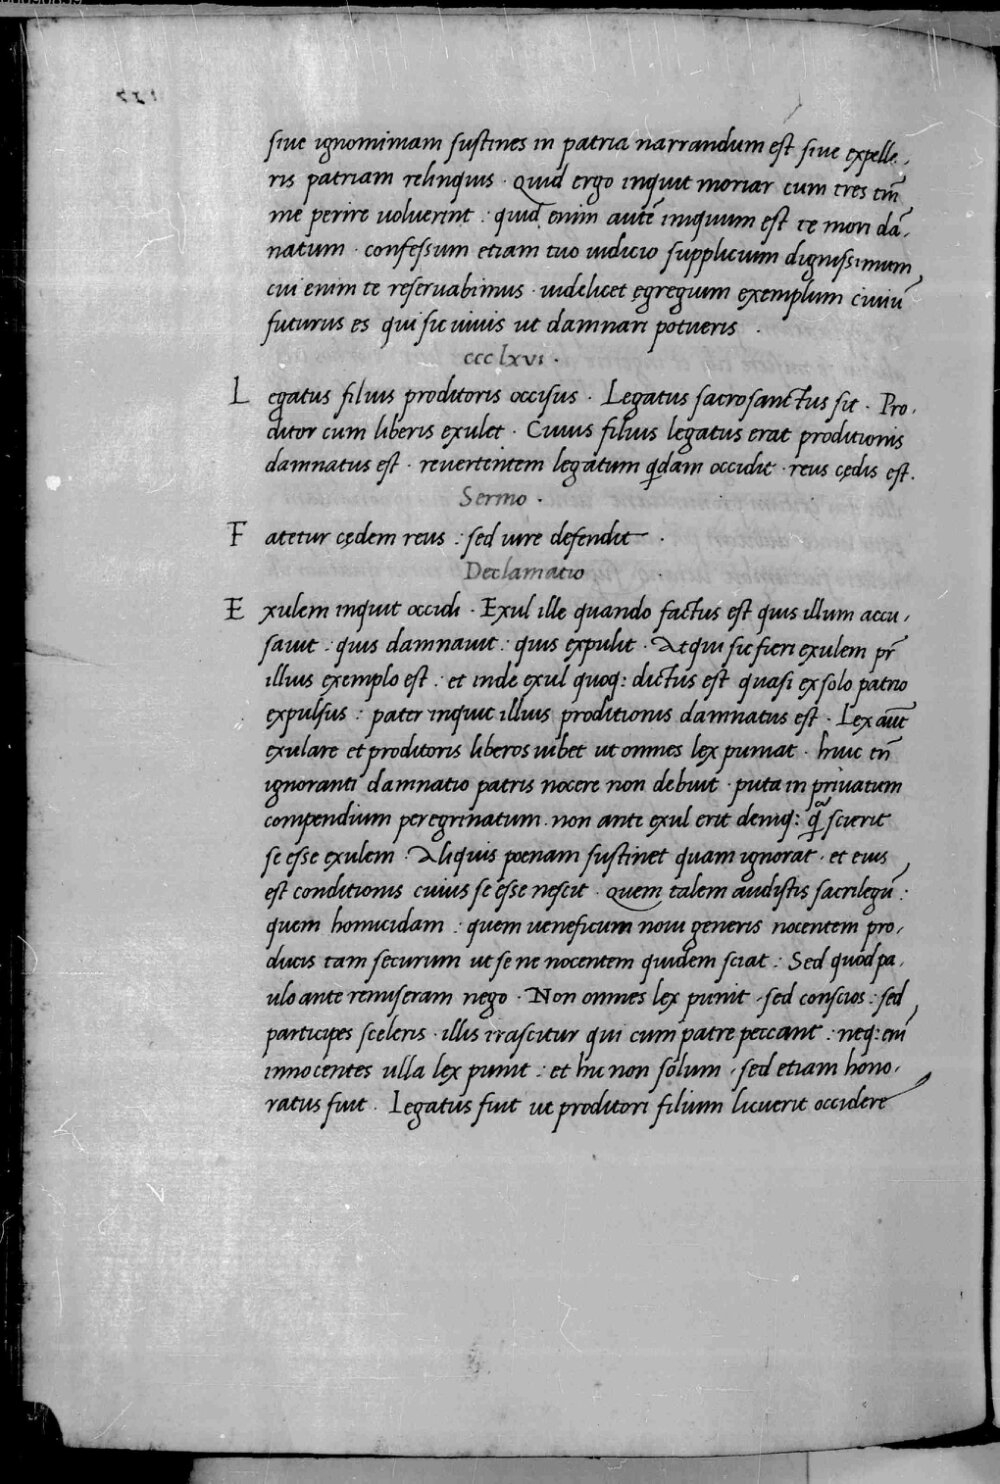 siue ignominiam sustines in patria narrandum est siue expelle,
ris patriam relinquis · Quid ergo inquit moriar cum tres tm̄
me perire uoluerint : quid enim autē iniquum est te mori dā,
natum · confessum etiam tuo iudicio supplicium dignissimum
cui enim te reseruabimus · uidelicet ęgregium exemplum ciuiū
futurus es qui sic uiuis ut damnari potueris ·
ccclxvi ·
Legatus filius proditoris occisus · Legatus sacrosanctus sit · Pro,
ditor cum liberis exulet · Cuius filius legatus erat proditionis
damnatus est · reuertentem legatum q̄dam occidit · reus cędis est.
Sermo ·
Fatetur cędem reus : sed iure defendit ·
Declamatio
Exulem inquit occidi · Exul ille quando factus est quis illum accu,
sauit : quis damnauit : quis expulit · Atqui sic fieri exulem pr̄
illius exemplo est : et inde exul quoq: dictus est quasi ex solo patrio
expulsus : pater inquit illius proditionis damnatus est · Lex aūt
exulare et proditoris liberos iubet ut omnes lex puniat · huic tn̄
ignoranti damnatio patris nocere non debuit · puta in priuatum
compendium peregrinatum · non ante exul erit deniq: q̄ scierit
se esse exulem · Aliquis poenam sustinet quam ignorat · et eius
est conditionis cuius se esse nescit · quem talem audistis sacrilegū :
quem homicidam : quem ueneficum noui generis nocentem pro,
ducis tam securum ut se ne nocentem quidem sciat : Sed quod pa,
ulo ante remiseram nego · Non omnes lex punit · sed conscios : sed
participes sceleris · illis irascitur qui cum patre peccant : neq: eni᷄
innocentes ulla lex punit : et hic non solum · sed etiam hono,
ratus fuit · Legatus fuit ut proditori filium licuerit occidere